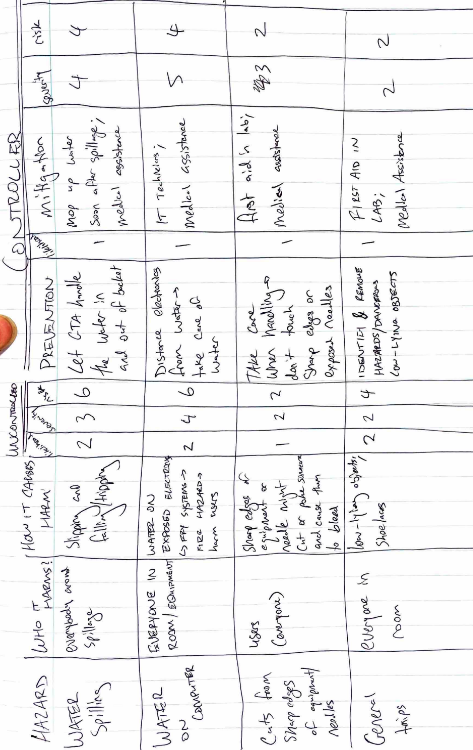 UNCONTROLLED
CONTROLLER
HAZARD
WHO IT
HARMS?
HOW IT CAUSES
HARM
severity
risk
PREVENTION
Mitigation
severity
risk
WATER
Spilling
everybody around
Spillage
Slipping and
falling/tripping
2
3
6
Let GTA handle
the water in
and out of bucket
1
Mop up water
soon after spillage;
medical assistance
4
4
WATER
ON
COMPUTER
EVERYONE IN
ROOM/EQUIPMENT
WATER ON
EXPOSED ELECTRONIC
SYSTEMS →
FIRE HAZARD →
harm users
2
4
6
Distance electronics
from water →
take care of
water
1
IT Technicians;
Medical assistance
5
4
Cuts from
sharp edges
of equipment/
needles
users
(everyone)
Sharp edges of
equipment or
needle might
cut or poke someone
and cause them
to bleed
1
2
2
TAKE Care
when handling →
don't touch
sharp edges or
exposed needles
1
first aid in lab;
Medical assistance
3
2
General
trips
everyone in
room
low-lying objects,
Shoelaces
2
2
4
IDENTIFY & REMOVE
HAZARDS/DANGEROUS
LOW-LYING OBJECTS
1
FIRST AID IN
LAB;
Medical Assistance
2
2